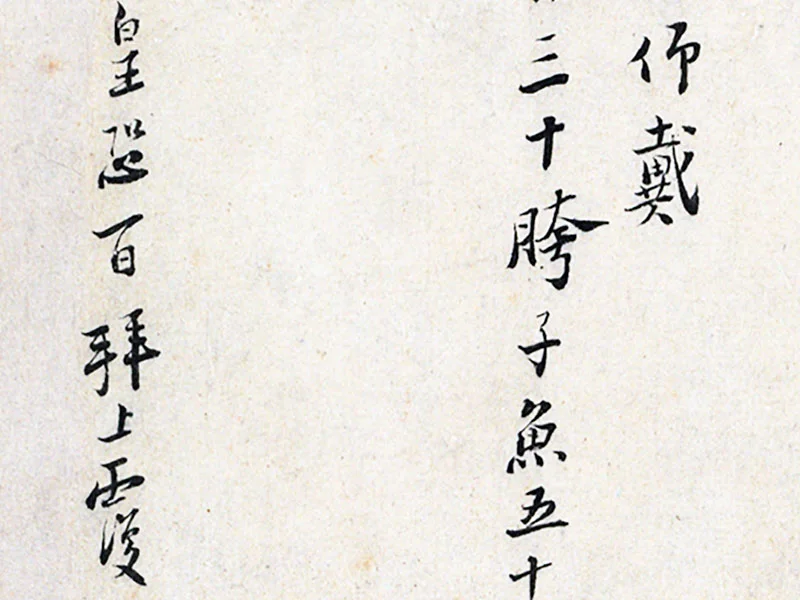 仰戴
三十胯子魚五十
皇恐百拜上覆